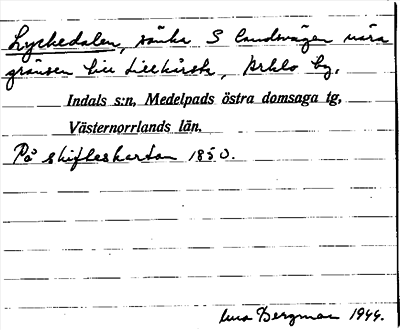 Lyckedalen, sänka S landsvägen nära
gränsen till Lillkårsta, Arklo by.
Indals s:n, Medelpads östra domsaga tg,
Västernorrlands län.
På skifteskartan 1850.
Bergman 1944.